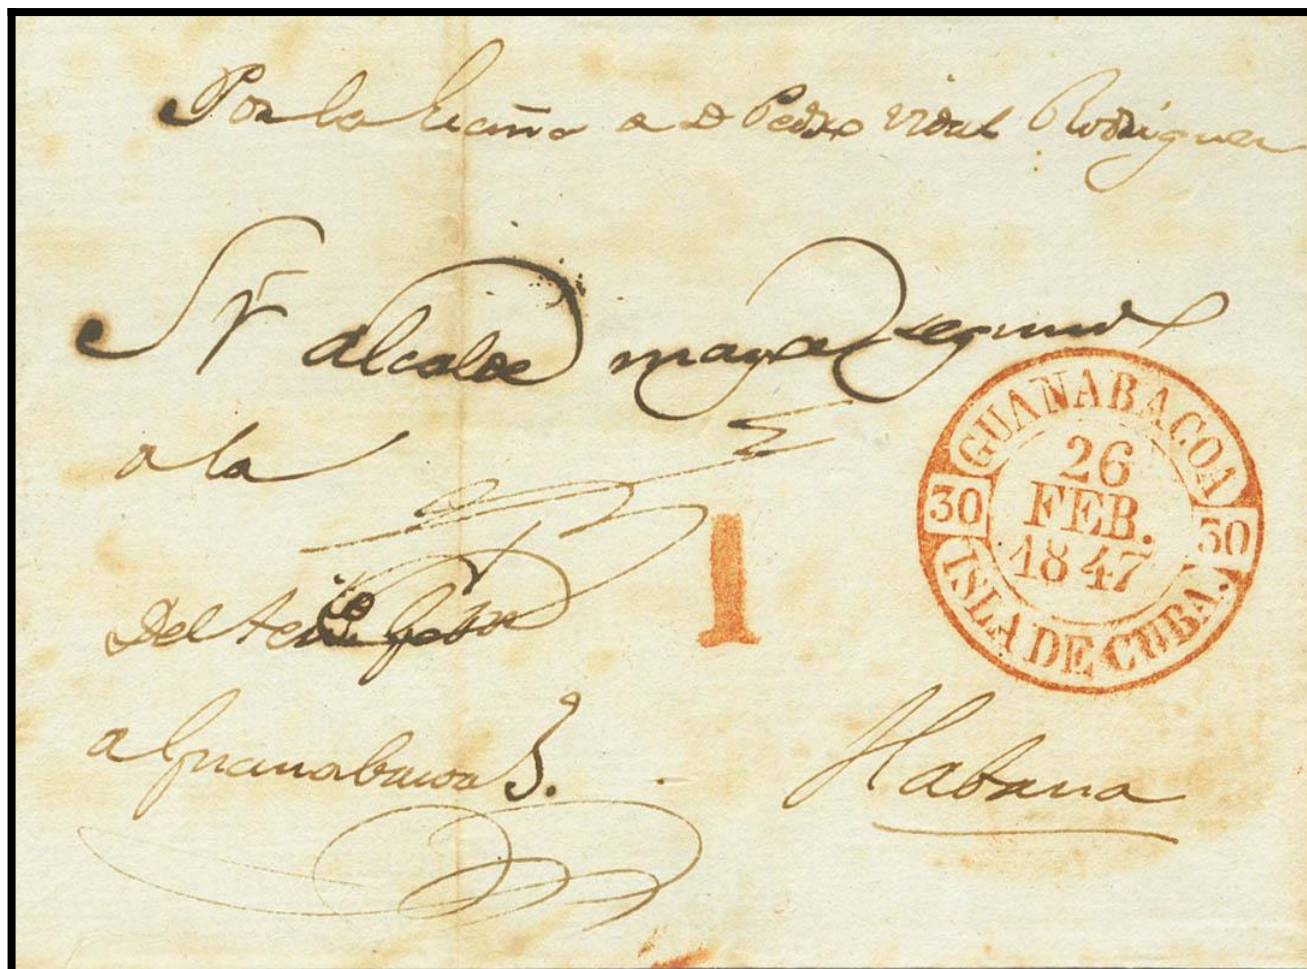 Por la Escña a D Pedro Vidal Rodriguez
Sr Alcalde mayor segundo
a la
GUANABACOA
30 26 30
FEB.
1847
ISLA DE CUBA.
1
Del
a Guanabacoa
Habana